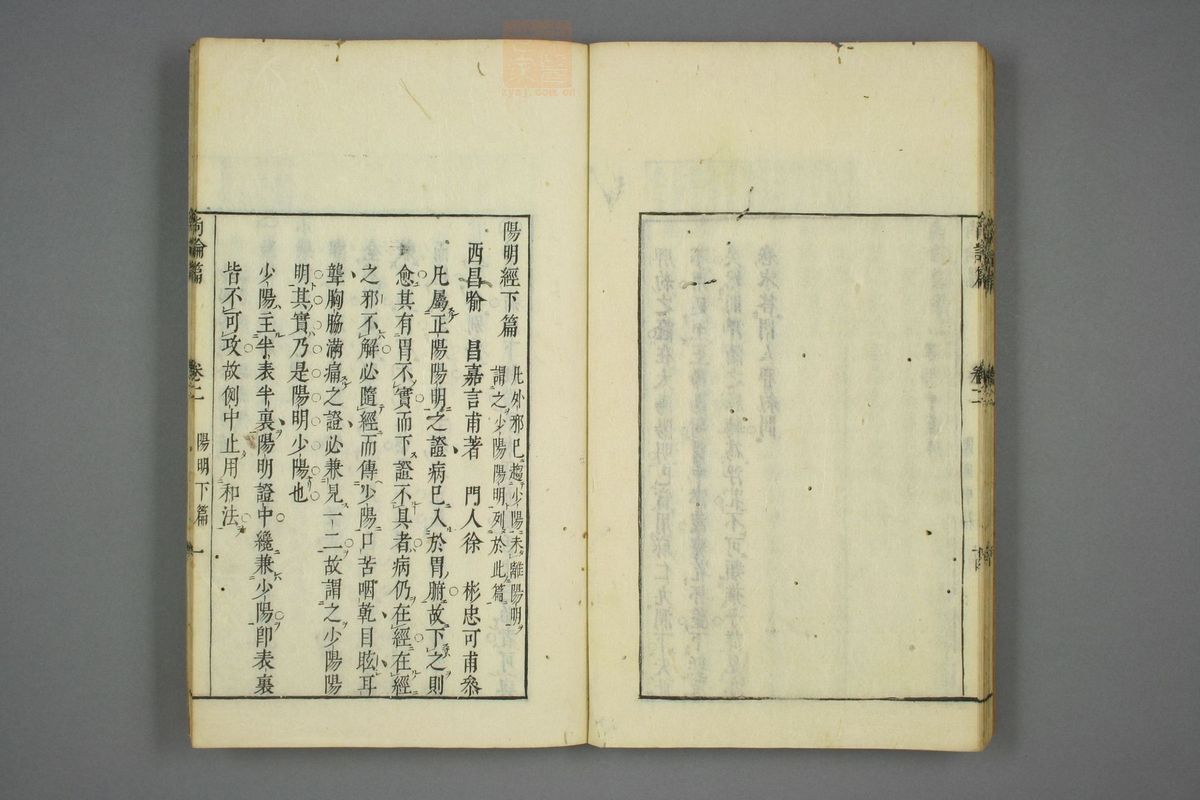 尚論篇 卷二
陽明經下篇
凡外邪已趨少陽未離陽明
謂之少陽陽明列於此篇
西昌喻 昌嘉言甫著 門人徐 彬忠可甫參
凡屬正陽陽明之證病已入於胃腑故下之則
愈其有胃不實而下證不具者病仍在經在經
之邪不解必隨經而傳少陽口苦咽乾目眩耳
聾胸脇滿痛之證必兼見一二故謂之少陽陽
明其實乃是陽明少陽也
少陽主半表半裏陽明證中纔兼少陽即表裏
皆不可攻故例中止用和法
尚論篇 卷二 陽明下篇 一
zysj.com.cn